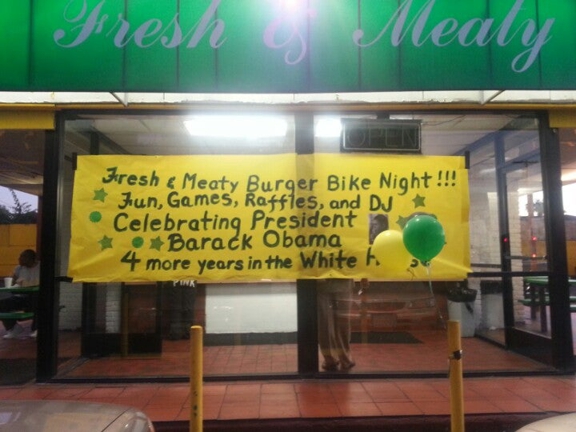 Fresh & Mealy
Fresh & Meaty Burger Bike Night!!!
Fun, Games, Raffles, and DJ
Celebrating President
Barack Obama
4 more years in the White
PINK